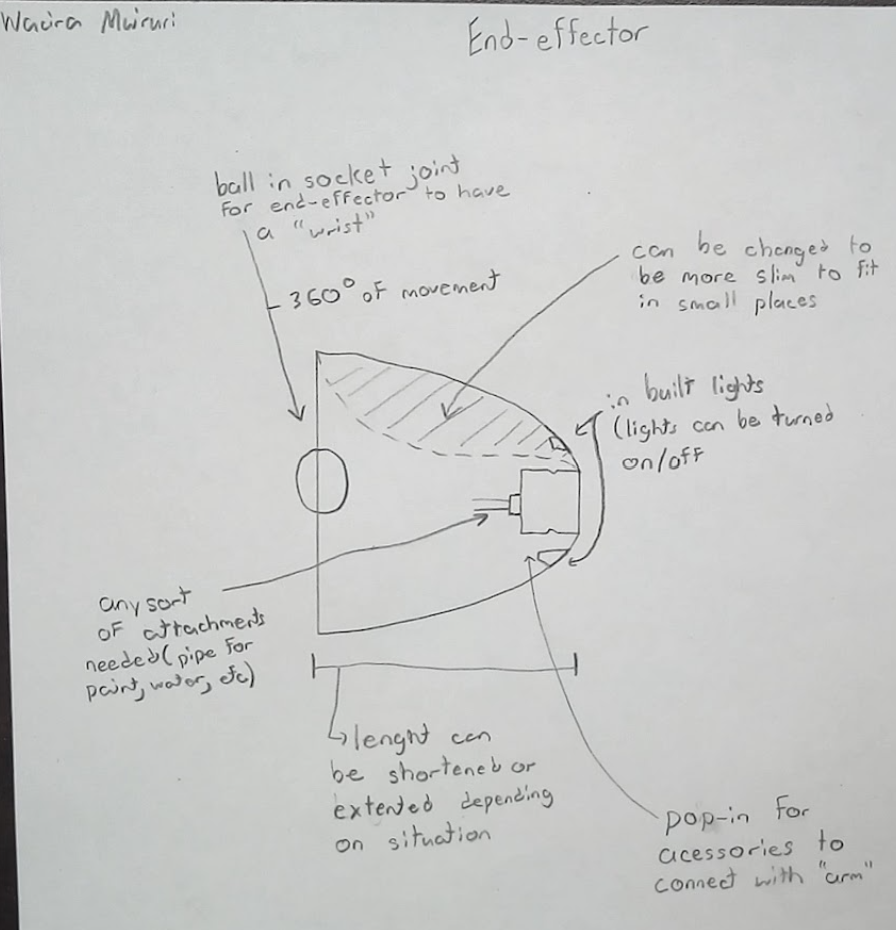 Wacira Muiruri
End-effector
ball in socket joint
for end-effector to have
a "wrist"
- 360° of movement
can be changed to
be more slim to fit
in small places
in built lights
(lights can be turned
on/off
any sort
of attachments
needed (pipe for
paint, water, etc)
lenght can
be shortened or
extented depending
on situation
pop-in for
acessories to
connect with "arm"